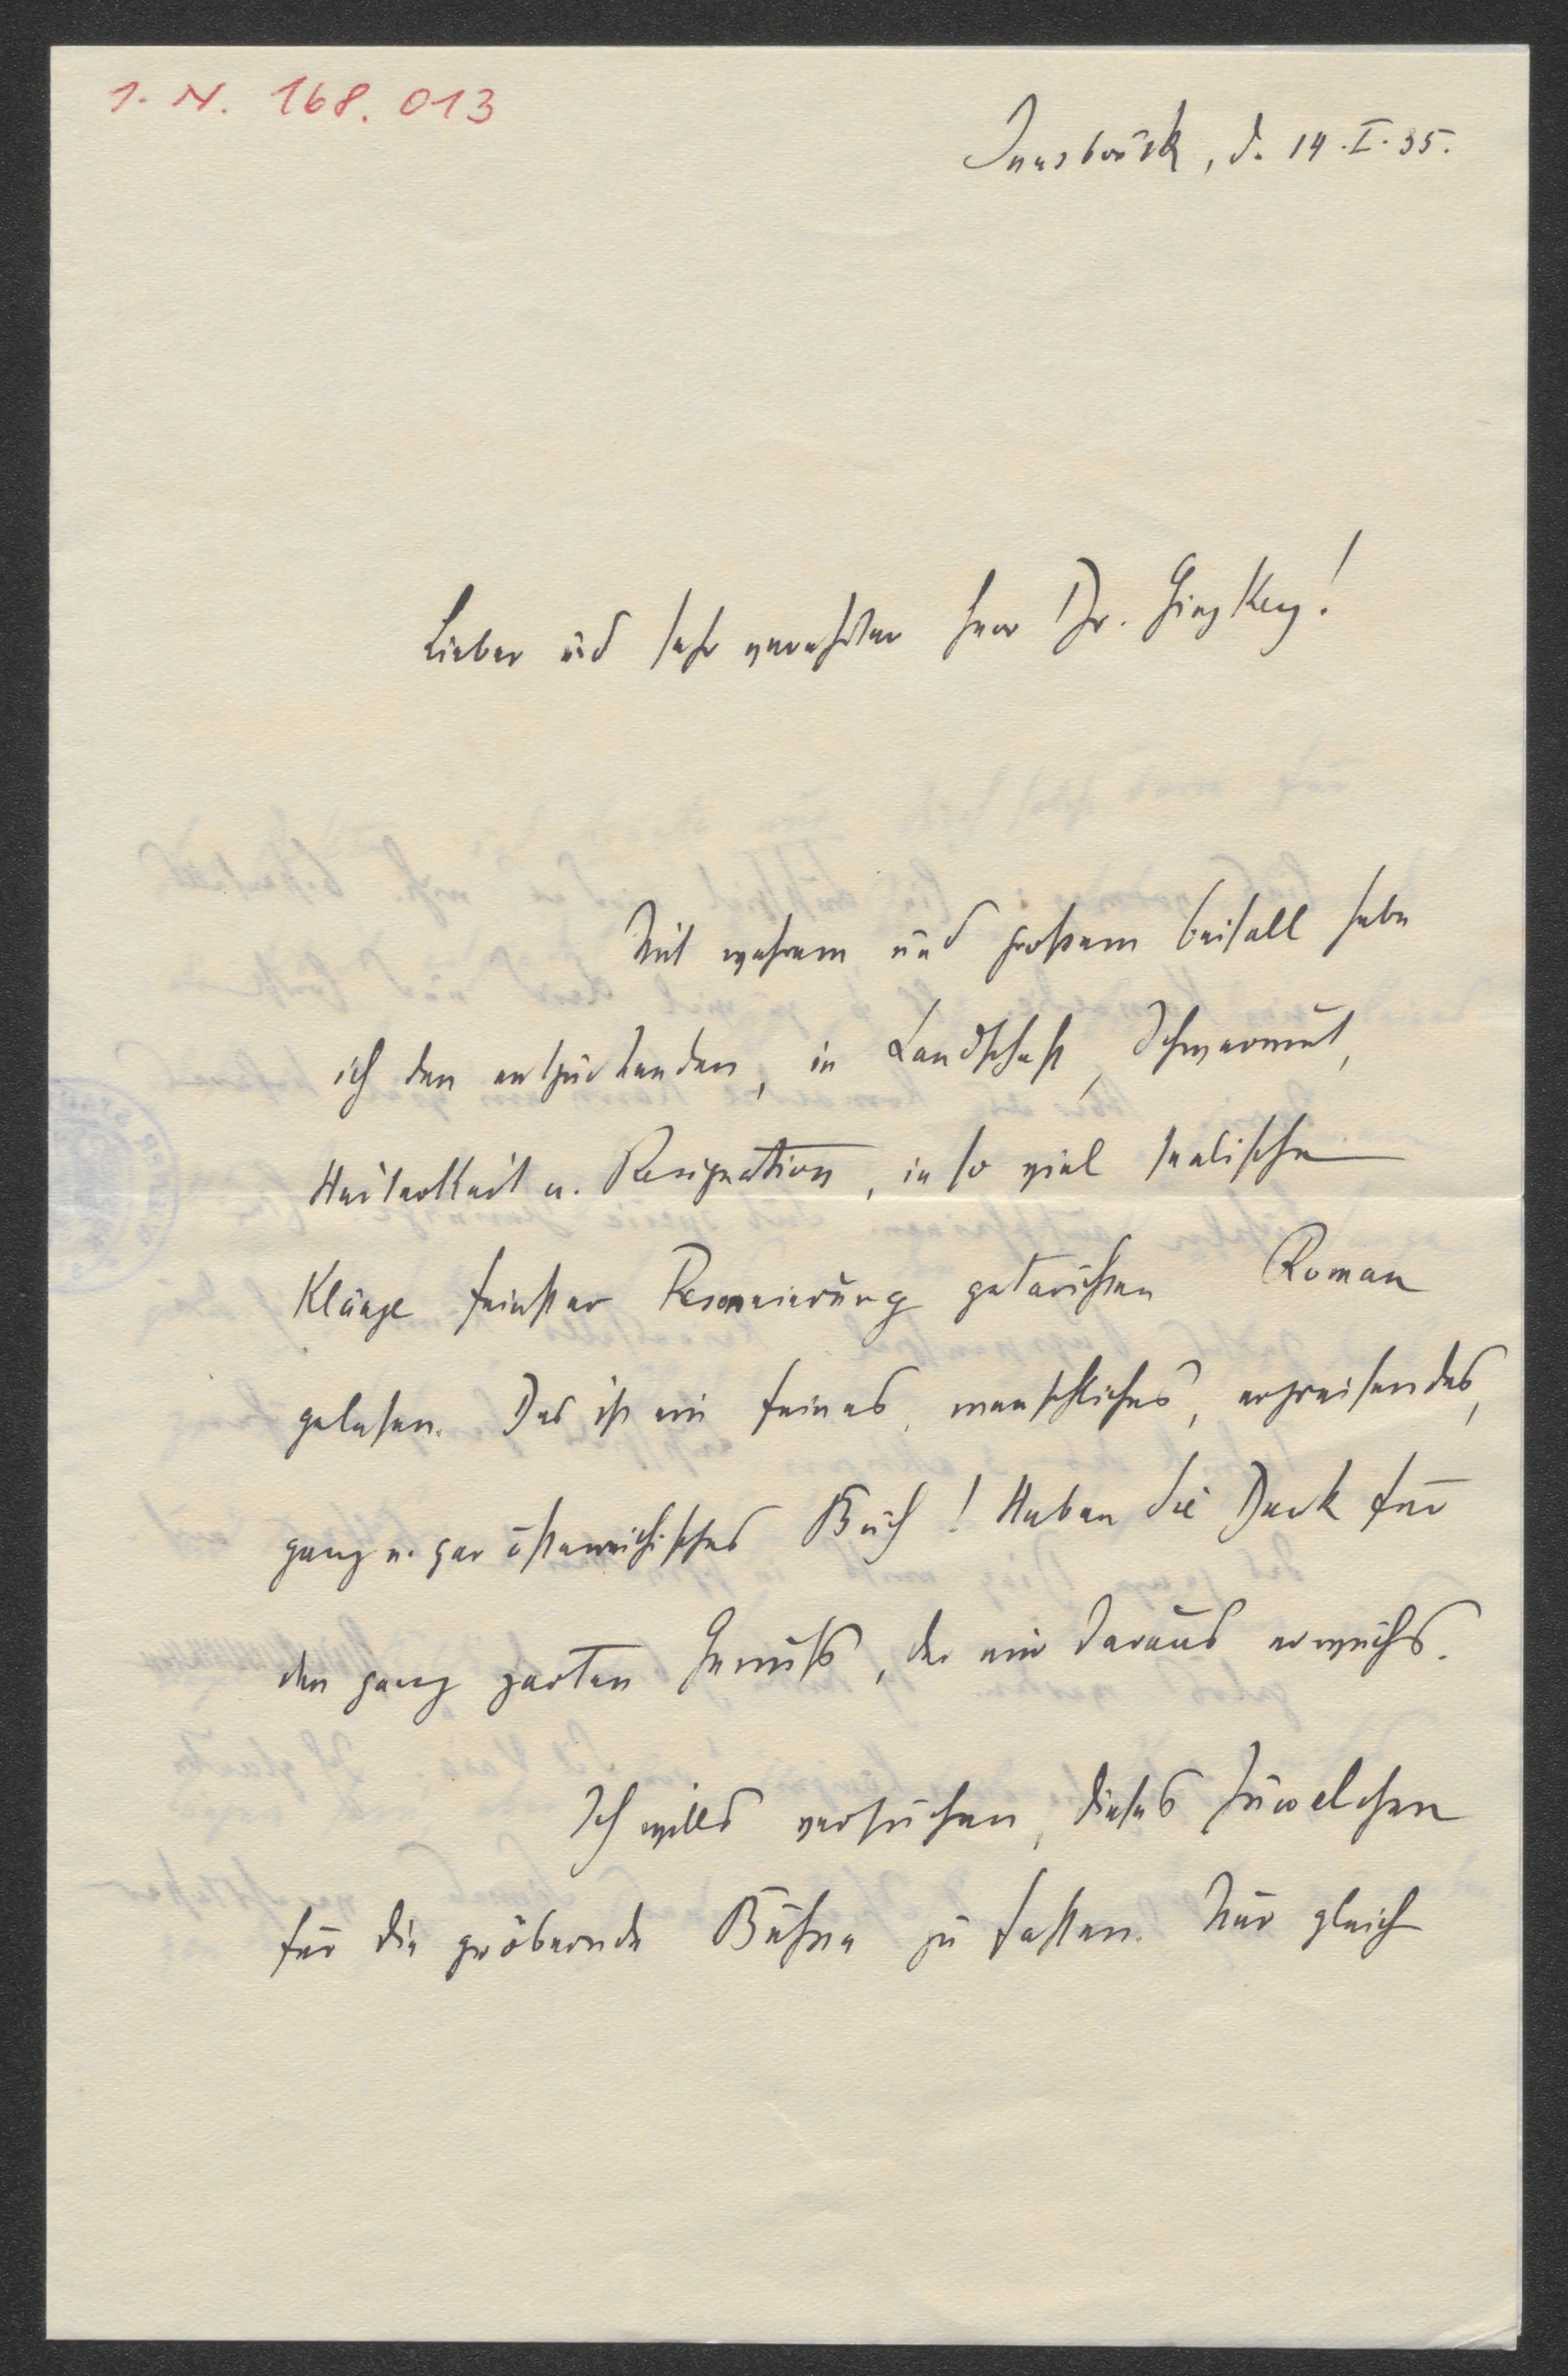 I. N. 168.013
Innsbruck, d. 14.I.35.
Lieber und sehr verehrter Herr Dr. Ginzkey!
Mit wahrem und großem Beifall habe
ich den entzückenden, in Landschaft, Schwermut,
Heiterkeit u. Resignation, in so viel seelische
Klänge feinster Resonierung getauchten Roman
gelesen. Das ist ein feines, menschliches, ergreifendes,
ganz u. gar österreichisches Buch! Haben Sie Dank für
den ganz zarten Genuß, der mir daraus erwuchs.
Ich will's versuchen, dieses Juwelchen
für die gröbernde Bühne zu fassen. Nur gleich